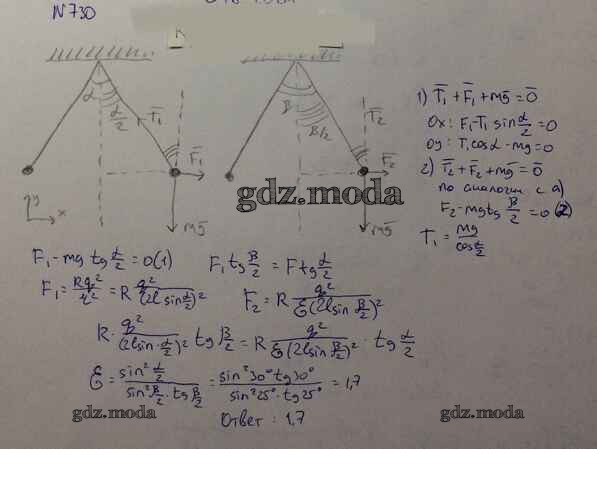 N730
α
α/2
T̄₁
F̄₁
mḡ
y
x
β
β/2
T̄₂
F̄₂
mḡ
gdz.moda
1) T̄₁ + F̄₁ + mḡ = 0̄
Ox: F₁ - T₁ sin α/2 = 0
Oy: T₁ cos α - mg = 0
2) T̄₂ + F̄₂ + mḡ = 0̄
по аналогии с а)
F₂ - mg tg β/2 = 0 (2)
T₁ = mg / cos α/2
F₁ - mg tg α/2 = 0 (1)
F₁ tg β/2 = F tg α/2
F₁ = Rq²/r² = R q²/(2l sin α/2)²
F₂ = R q²/ε(2l sin β/2)²
R · q²/(2l sin · α/2)² tg β/2 = R q²/ε(2l sin β/2)² · tg α/2
ε = sin² α/2 / sin² β/2 · tg β/2 = sin² 30° tg 30° / sin² 25° · tg 25° = 1,7
Ответ : 1,7
gdz.moda
gdz.moda